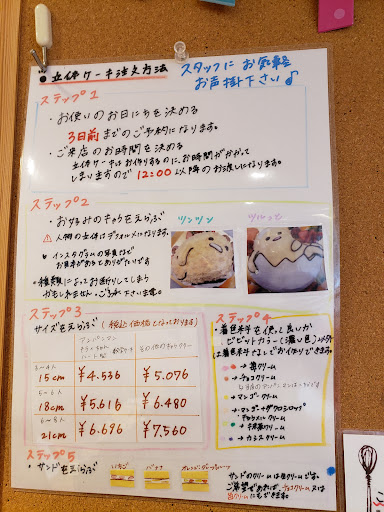 立体ケーキ注文方法
スタッフに お気軽に
お声掛下さい♪
ステップ1
・お使いのお日にちを決める
3日前までのご予約になります。
・ご来店のお時間を決める
立体ケーキはお作りするのに、お時間がかかって
しまいますので 12:00以降のお渡しになります。
ステップ2
・お好みのキャラをえらぶ
⚠人物の立体はデフォルメになります。
インスタグラムの写真など
お見本があるとありがたいです
・種類によってお断りしてしまう
かもしれません。ご了承下さいませ。
ツンツン
ステップ3
サイズをえらぶ (税込価格となっております)
アンパンマン
その他のキャラクリーム
15cm ¥4.536 ¥5.076
18cm ¥5.616 ¥6.480
21cm ¥6.696 ¥7.560
ステップ4
・着色料を使って良いか
ビビットカラー(濃い色)以外
は着色料なしでお作りできます。
→ 苺クリーム
→ チョコクリーム
→ マンゴークリーム
→ 抹茶クリーム
→ カシスクリーム
ステップ5
・サンドをえらぶ
いちご
バナナ
サンドのクリームは生クリームです。
チョコクリーム 又は